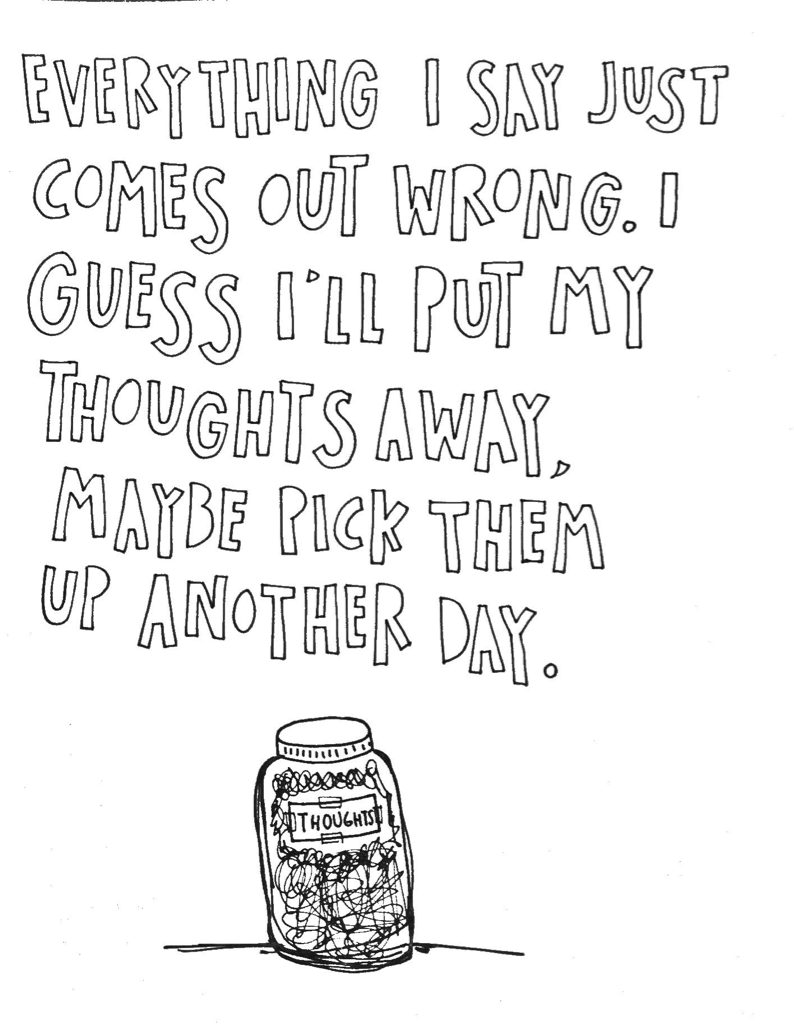 EVERYTHING I SAY JUST
COMES OUT WRONG. I
GUESS I'LL PUT MY
THOUGHTS AWAY,
MAYBE PICK THEM
UP ANOTHER DAY.
THOUGHTS